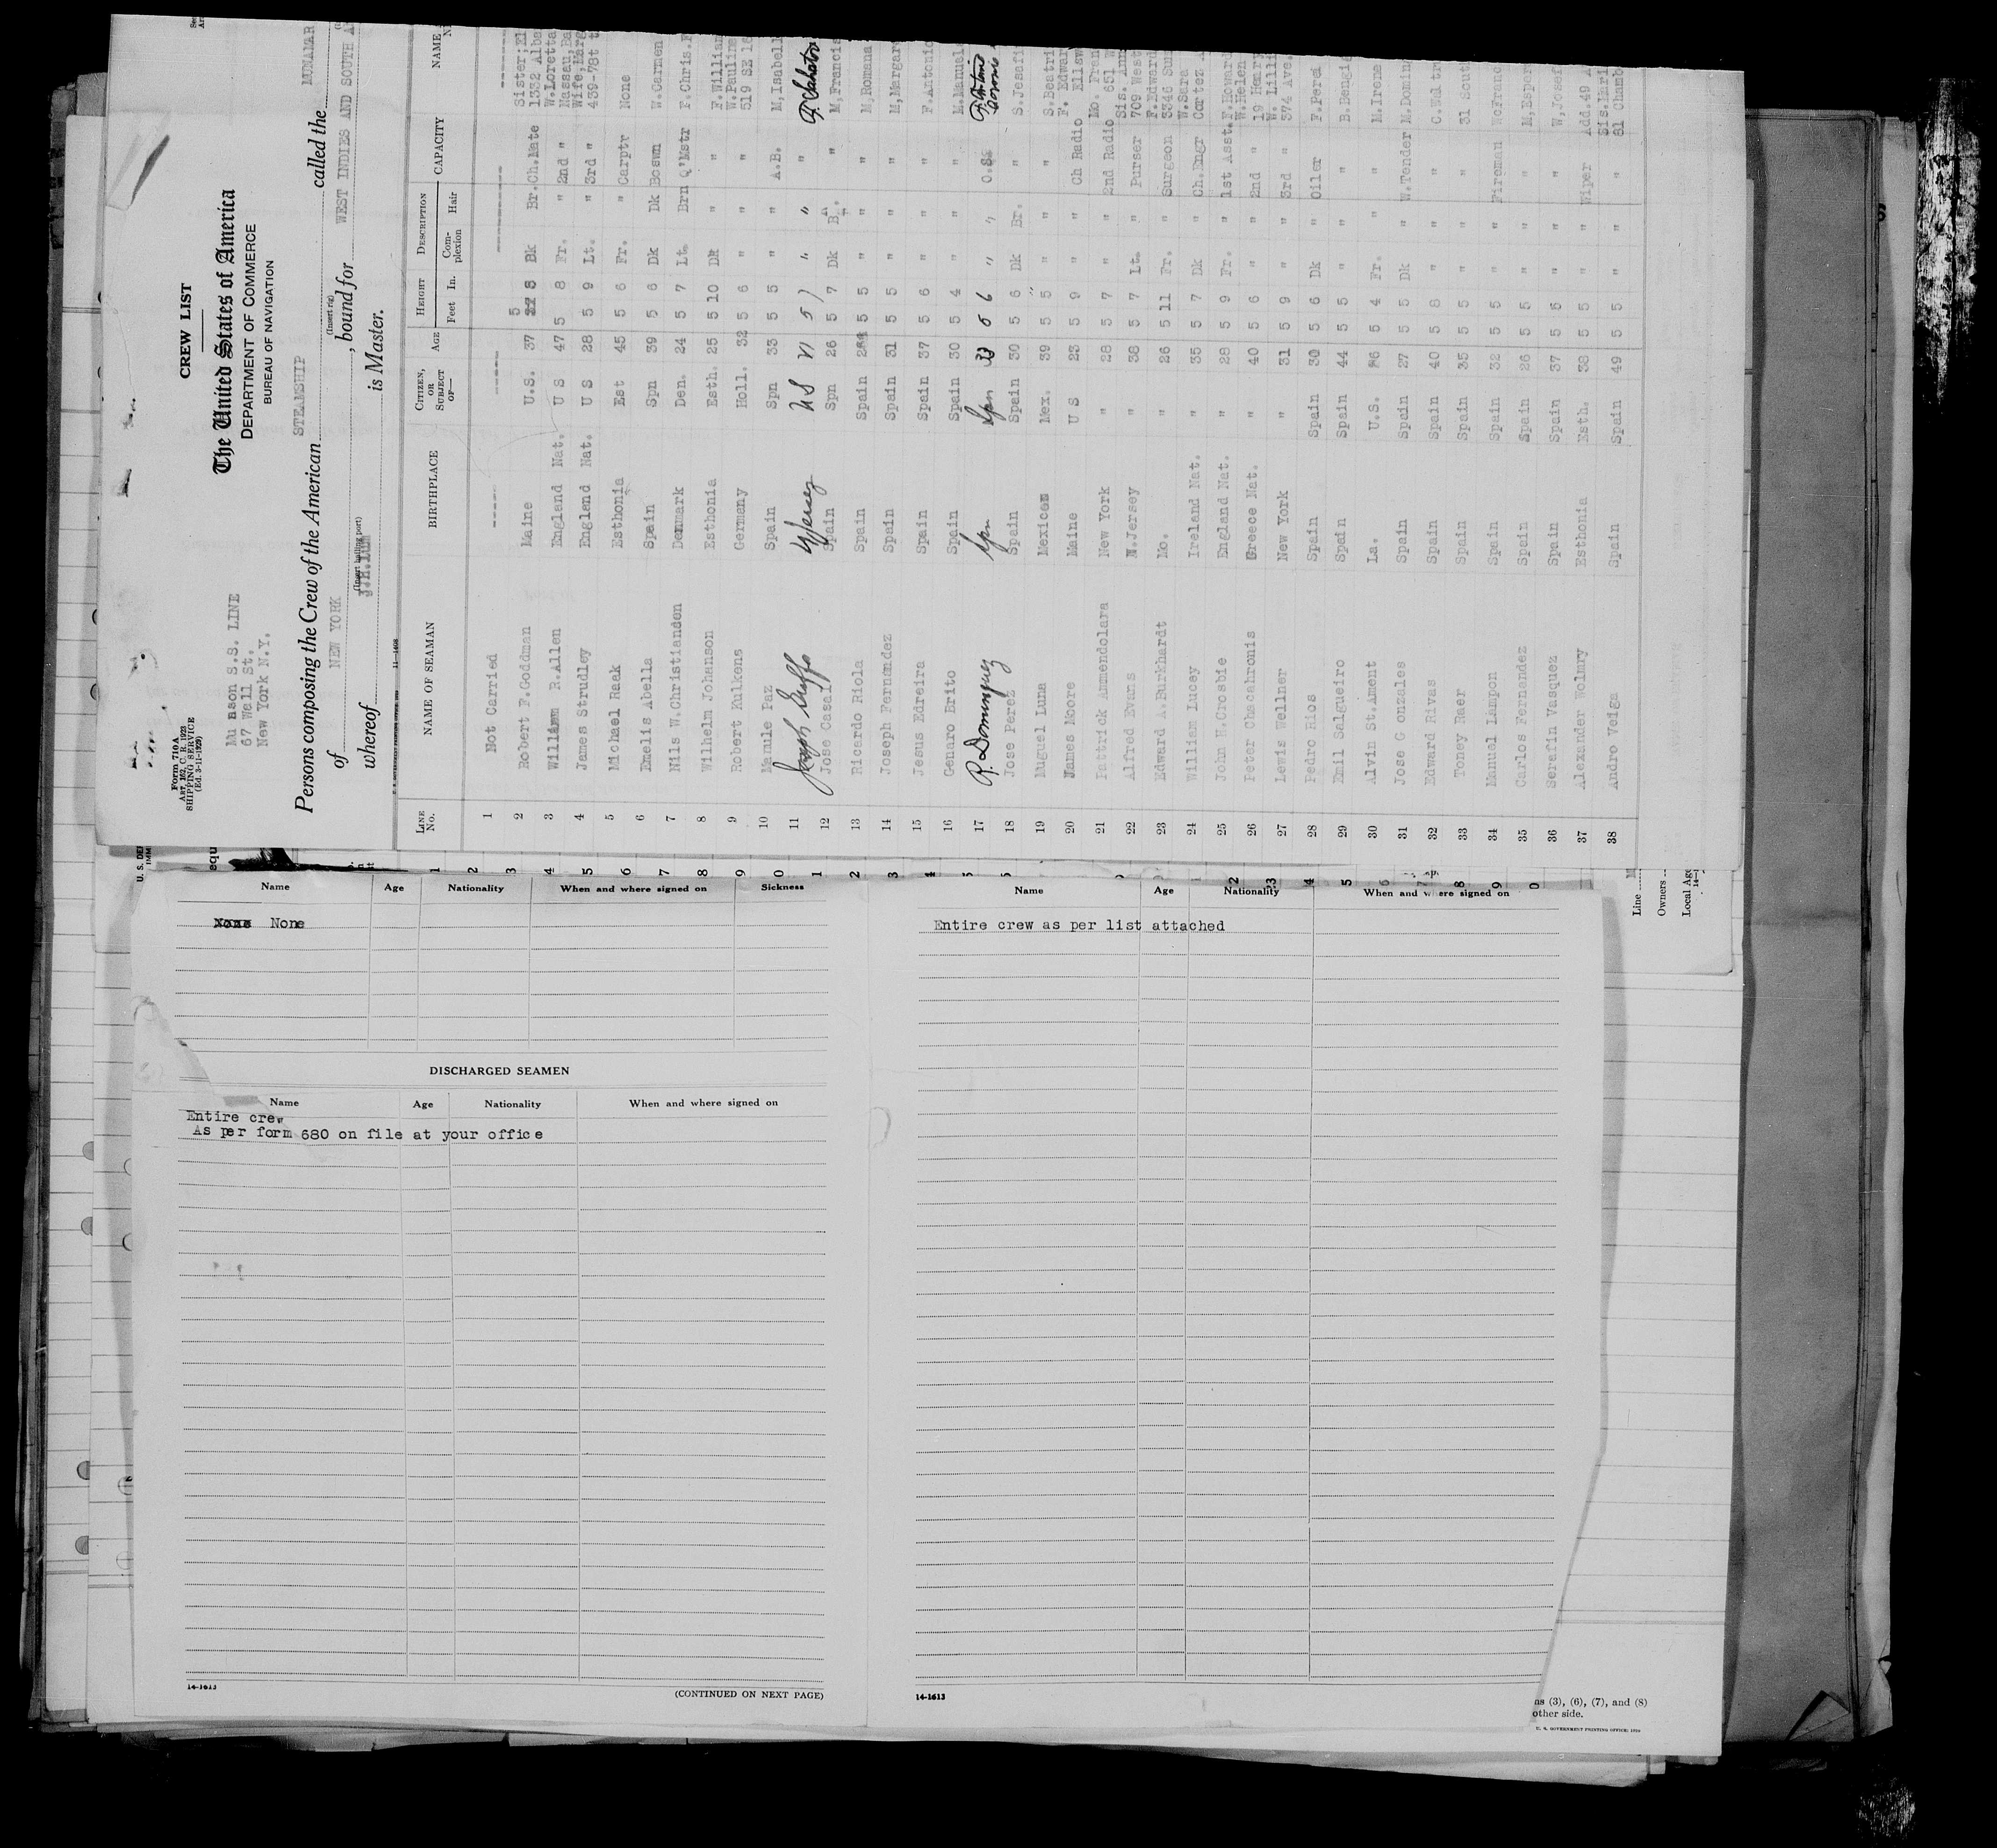 Form 710 A
Art. 162, C. R. 1923
SHIPPING SERVICE
(Ed. 3-11-1929)
CREW LIST
The United States of America
DEPARTMENT OF COMMERCE
BUREAU OF NAVIGATION
Mu nson S.S. LINE
67 Wall St.
New York N.Y.
STEAMSHIP MUNAMAR
Persons composing the Crew of the American called the
(Insert rig)
of NEW YORK , bound for WEST INDIES AND SOUTH
(Insert hailing port)
whereof is Master.
LINE No. NAME OF SEAMAN BIRTHPLACE CITIZEN, OR SUBJECT OF— AGE HEIGHT Feet In. DESCRIPTION Complexion Hair CAPACITY NAME
1 Not Carried
2 Robert F.Goddman Maine U.S. 37 5 8 Bk Br. Ch.Mate Sister;El 1332 Alba
3 William R.Allen England Nat. U S 47 5 8 Fr. " 2nd " W.Loretta Nassau,Ba
4 James Strudley England Nat. U S 28 5 9 Lt. " 3rd " Wife,Marg 439-78t
5 Michael Raak Esthonia Est 45 5 6 Fr. " Carptr None
6 Emelis Abella Spain Spn 39 5 6 Dk Dk Boswn W.Carmen
7 Nils W.Christiansen Denmark Den. 24 5 7 Lt. Brn Q'Mstr F.Chris.F
8 Wilhelm Johanson Esthonia Esth. 25 5 10 Dk " " F.Willian
9 Robert Kulkens Germany Holl. 32 5 6 " " " W.Paulina 519 SE 16
10 Mamule Paz Spain Spn 33 5 5 " " A.B. M,Isabell
11 Joseph N Jersey US 21 5 7 " " "
12 Jose Casal Spain Spn 26 5 7 Dk Br. " M,Francis
13 Ricardo Riola Spain Spain 5 5 " " " M,Romana
14 Joseph Fernandez Spain Spain 31 5 5 " " " M,Margar
15 Jesus Edreira Spain Spain 37 5 6 " " " F.Antonio
16 Genaro Brito Spain Spain 30 5 4 " " " M.Manuel
17 R. Dominguez Spn Spn 33 5 6 " " O.S.
18 Jose Perez Spain Spain 30 5 6 Dk Br. " S.Jesefi
19 Miguel Luna Mexico Mex. 39 5 5 " " " S.Beatri
20 James Moore Maine U S 23 5 9 " " Ch Radio F. Edwar Ellsw
21 Patrick Ammendolara New York " 28 5 7 " " 2nd Radio Mo. Fran 651 W
22 Alfred Evans N.Jersey " 38 5 7 Lt. " Purser Sis. Ann 709 West
23 Edward A.Burkhardt Mo. " 26 5 11 Fr. " Surgeon F.Edward 3346 Sun
24 William Lucey Ireland Nat. " 35 5 7 Dk " Ch.Engr W.Sara Cortez A
25 John H.Crosbie England Nat. " 28 5 9 Fr. " 1st Asst. F.Howard
26 Peter Chacahronis Greece Nat. " 40 5 6 " " 2nd " W.Helen 19 Henry
27 Lewis Wellner New York " 31 5 9 " " 3rd " W. Lilli 374 Ave.
28 Pedro Rios Spain Spain 30 5 6 Dk " Oiler F.Perei
29 Emil Salgueiro Spain Spain 44 5 5 " " " B.Bengie
30 Alvin St.Ament La. U.S. 5 4 Fr. " " M.Irene
31 Jose G onzales Spain Spain 27 5 5 Dk " W.Tender M.Domin
32 Edward Rivas Spain Spain 40 5 8 " " "
33 Toney Baer Spain Spain 35 5 5 " " " 31 South
34 Manuel Lampon Spain Spain 32 5 5 " " Fireman
35 Carlos Fernandez Spain Spain 26 5 5 " " " M,Esper
36 Serafin Vasquez Spain Spain 37 5 6 " " " W,Josef
37 Alexander Wolmry Esthonia Esth. 38 5 5 " " Wiper Add.49 A
38 Andro Veiga Spain Spain 49 5 5 " " " Sis.Mari 81 Chamb
Name Age Nationality When and where signed on Sickness
None None
DISCHARGED SEAMEN
Name Age Nationality When and where signed on
Entire crew
As per form 680 on file at your office
14-1613
(CONTINUED ON NEXT PAGE)
Name Age Nationality When and where signed on
Entire crew as per list attached
14-1613
Line
Owners
Local Age
ns (3), (6), (7), and (8)
other side.
U. S. GOVERNMENT PRINTING OFFICE: 1929